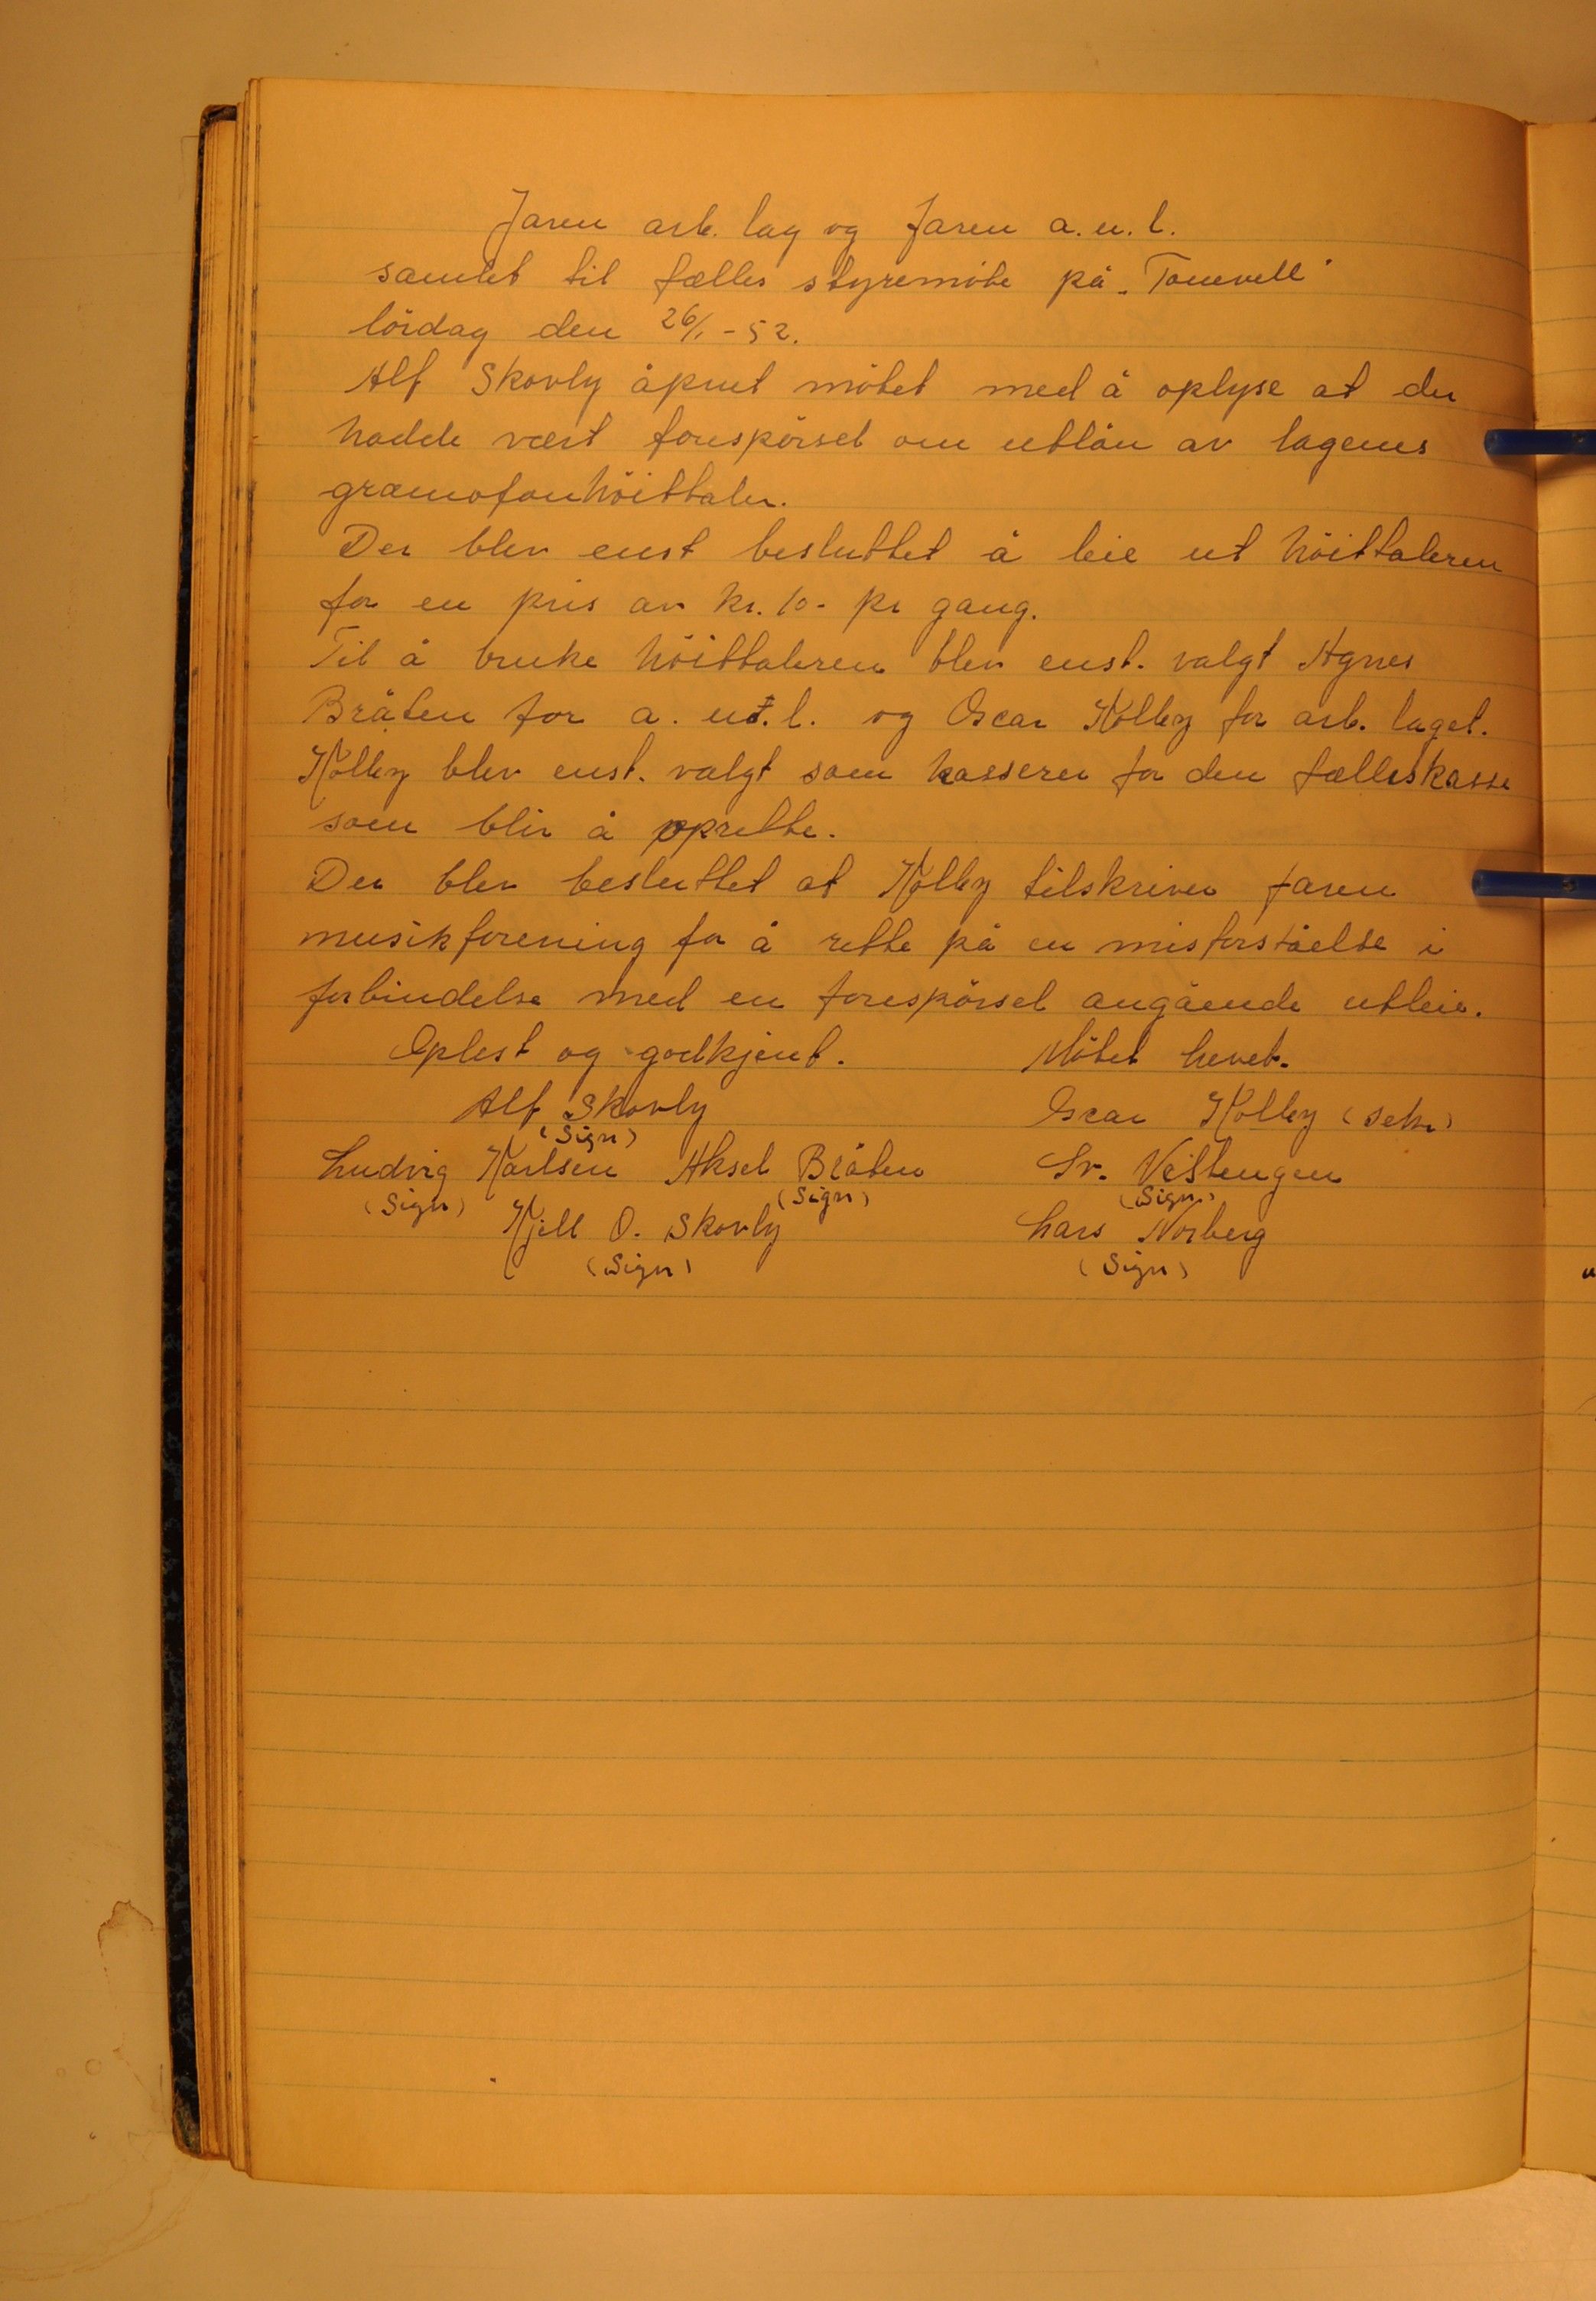 Jaren arb. lag og Jaren a.u.l.
samlet til fælles styremöte på „Tomvell"
lördag den 26/1 - 52.
Alf Skovly åpnet mötet med å oplyse at der
hadde vært forespörsel om utlån av lagenes
gramofonhöittaler.
Der blev enst besluttet å leie ut höittaleren
for en pris av kr. 10- pr gang.
Til å bruke höittaleren blev enst. valgt Agnes
Bråten for a.u.l. og Oscar Kolby for arb. laget.
Kolby blev enst. valgt som kasserer for den fælleskasse
som blir å oprette.
Der blev besluttet at Kolby tilskriver Jaren
musikforening for å rette på en misforståelse i
forbindelse med en forespörsel angående utleie.
Oplest og godkjent. Mötet hevet.
Alf Skovly Oscar Kolby (sekr)
(Sign)
Ludvig Karlsen Aksel Bråten Sv. Vestengen
(Sign) (Sign) (Sign)
Kjell O. Skovly Lars Norberg
(Sign) (Sign)